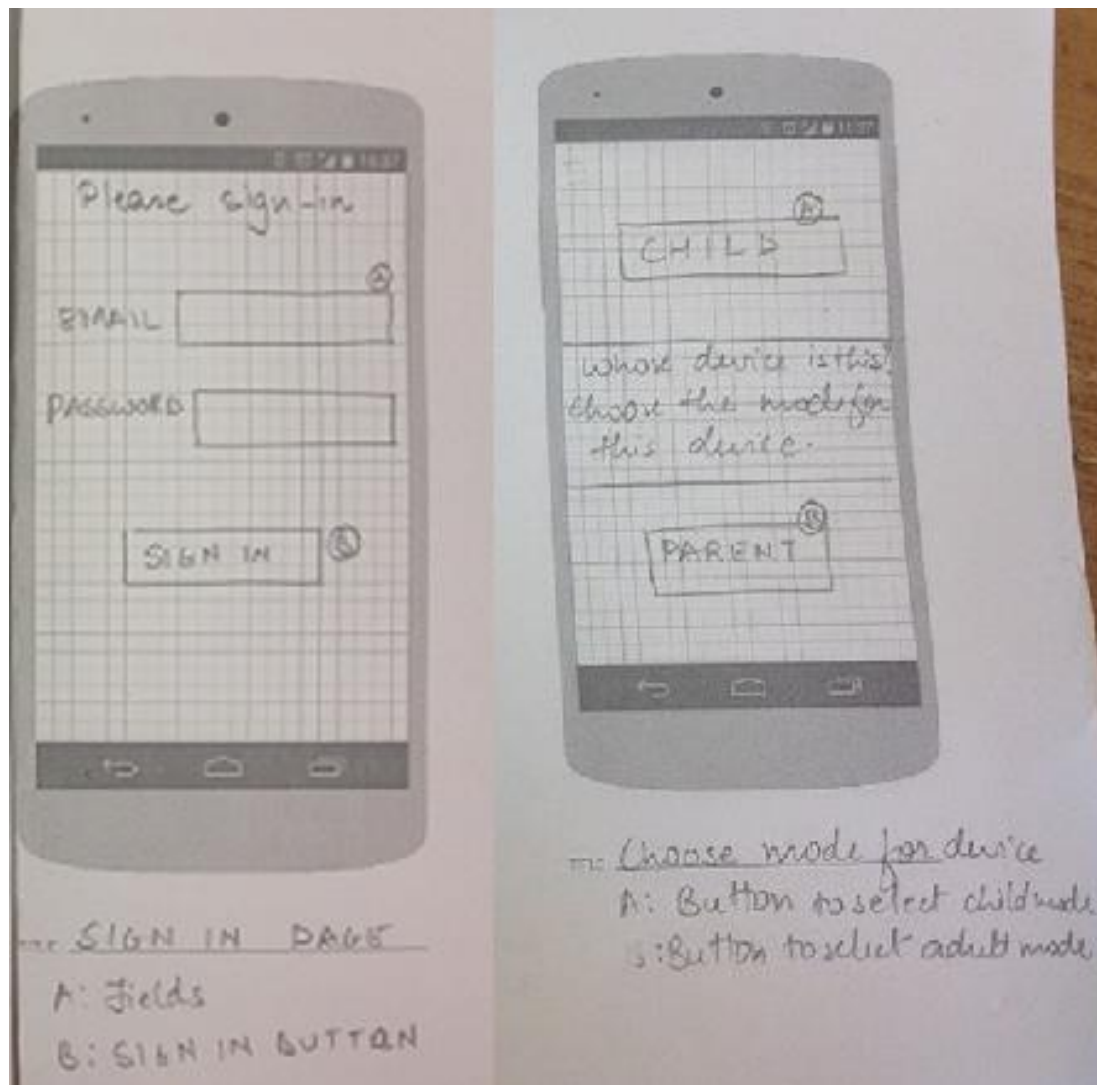 Please sign-in
A
EMAIL
PASSWORD
SIGN IN B
SIGN IN PAGE
A: Fields
B: SIGN IN BUTTON
A
CHILD
Whose device is this?
Choose the mode for
this device.
B
PARENT
Choose mode for device
A: Button to select child mode
B: Button to select adult mode